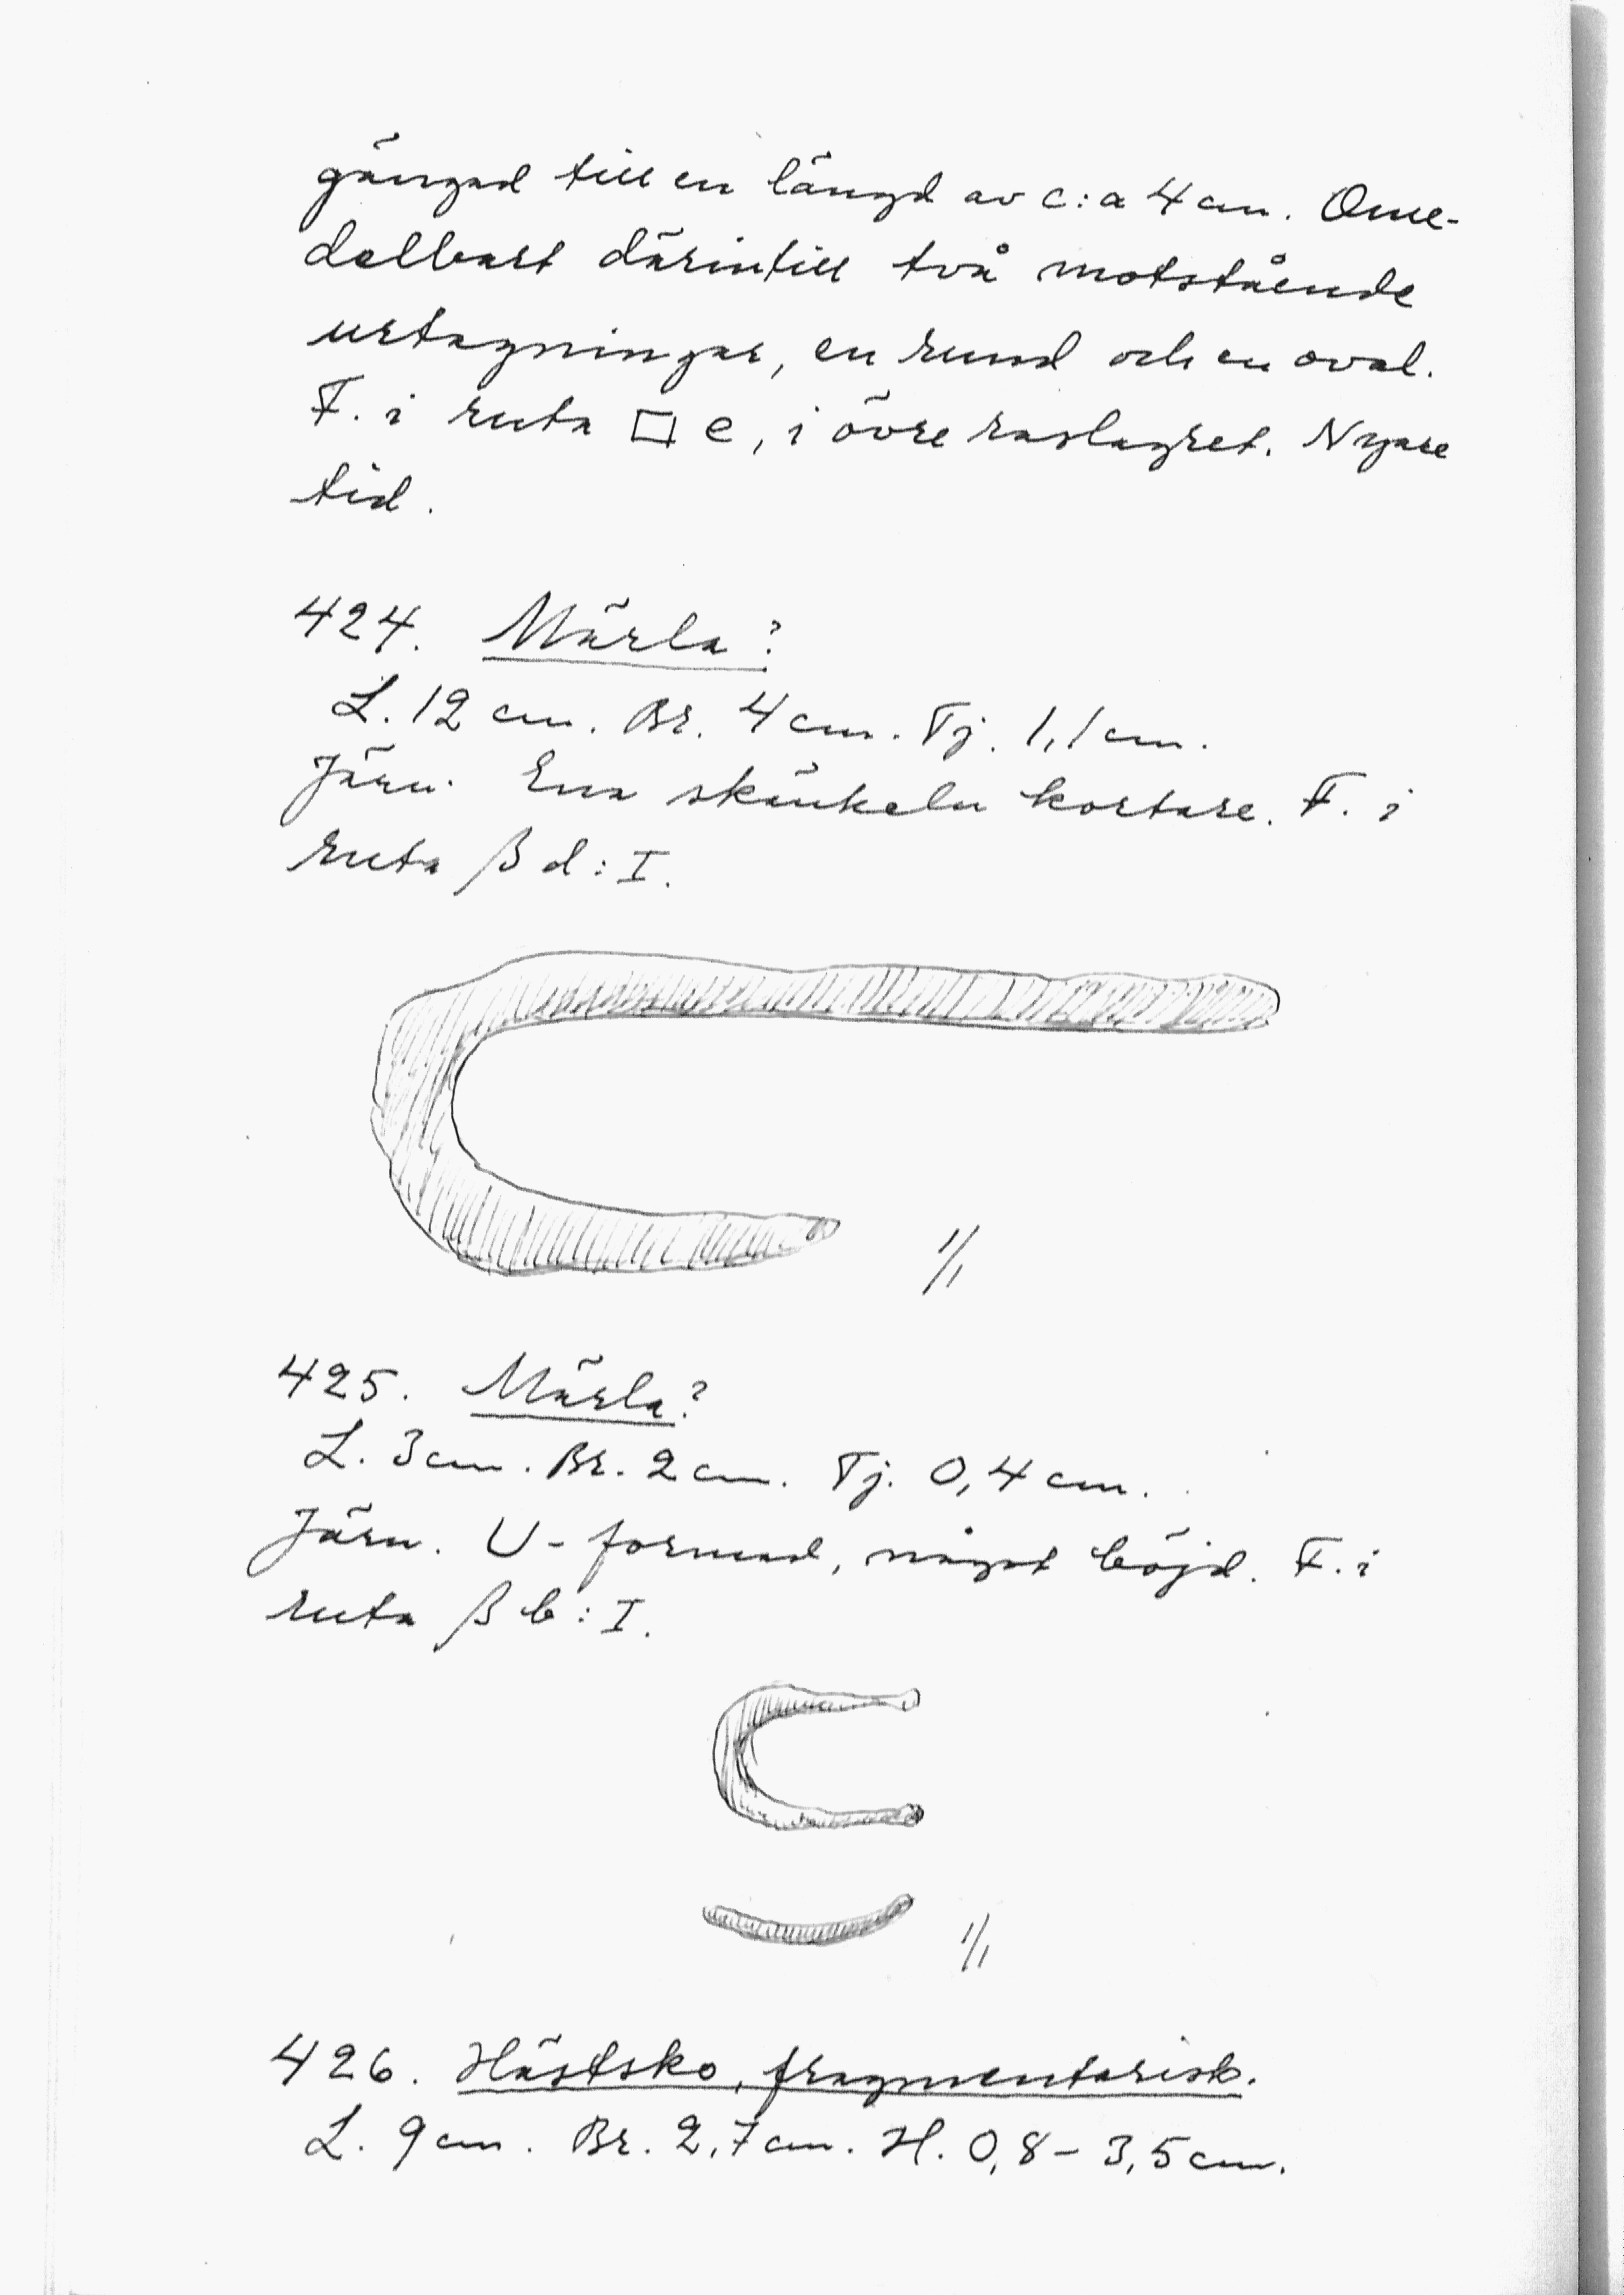 gängad till en längd av c:a 4 cm. Ome-
delbart därintill två motstående
urtagningar, en rund och en oval.
F. i ruta □ e, i övre raslagret. Nyare
tid.
424. Märla?
L. 12 cm. Br. 4 cm. Tj. 1,1 cm.
Järn. Ena skänkeln kortare. F. i
ruta β d: I.
1/1
425. Märla?
L. 3 cm. Br. 2 cm. Tj. 0,4 cm.
Järn. U-formad, något böjd. F. i
ruta β b: I.
1/1
426. Hästsko, fragmentarisk.
L. 9 cm. Br. 2,7 cm. H. 0,8 - 3,5 cm.